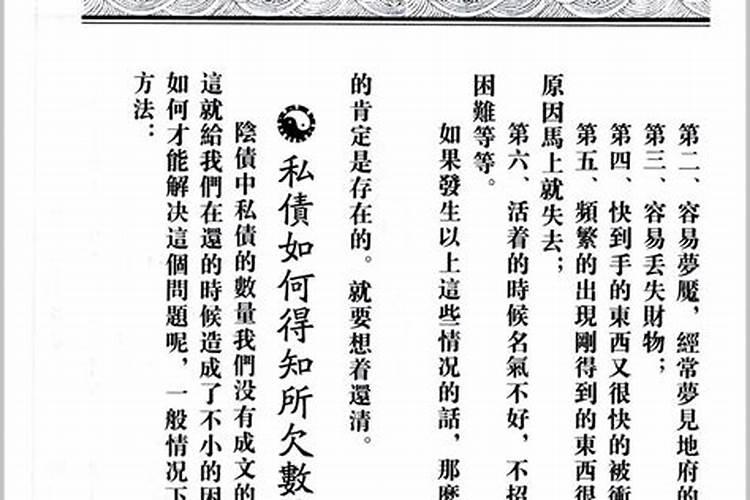 第二、容易夢魘，經常夢見地府的
第三、容易丟失財物；
第四、快到手的東西又很快的被衝
第五、頻繁的出現剛得到的東西很
原因馬上就失去；
第六、活着的時候名氣不好，不招
困難等等。
如果發生以上這些情況的話，那麽
的肯定是存在的。就要想着還清。
私債如何得知所欠數
陰債中私債的數量我們没有成文的
這就給我們在還的時候造成了不小的困
如何才能解决這個問題呢，一般情况下
方法：